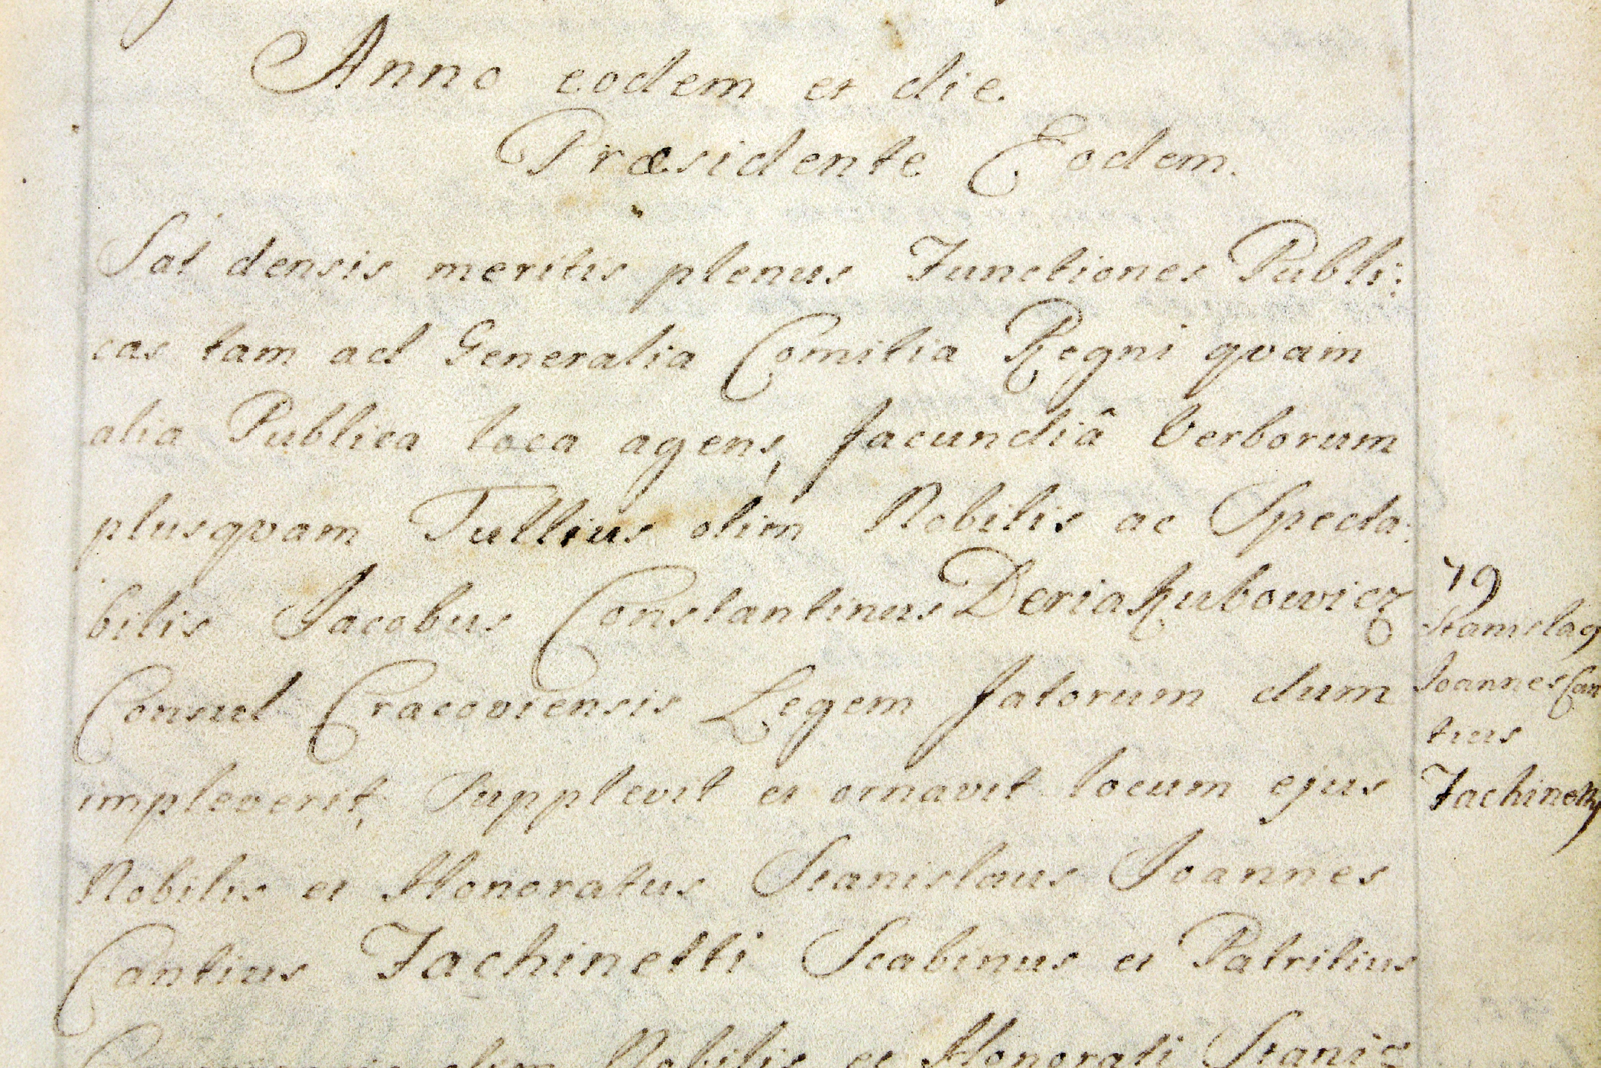 Anno eodem et die.
Præsidente Eodem.
Sat densis meritis plenus Functiones Publi:
cas tam ad Generalia Comitia Regni qvam
alia Publica loca agens, facundiâ Verborum
plusqvam Tullius olim Nobilis ac Specta:
bilis Jacobus Constantinus Deriakubowicz
Consul Cracoviensis Legem fatorum dum
impleverit, Supplevit et ornavit locum ejus
Nobilis et Honoratus Stanislaus Joannes
Cantius Fachinetti Scabinus et Patritius
olim Nobilis et Honorati Stanis
79
Stanislaq
Joannes Can
tius
Fachinetty